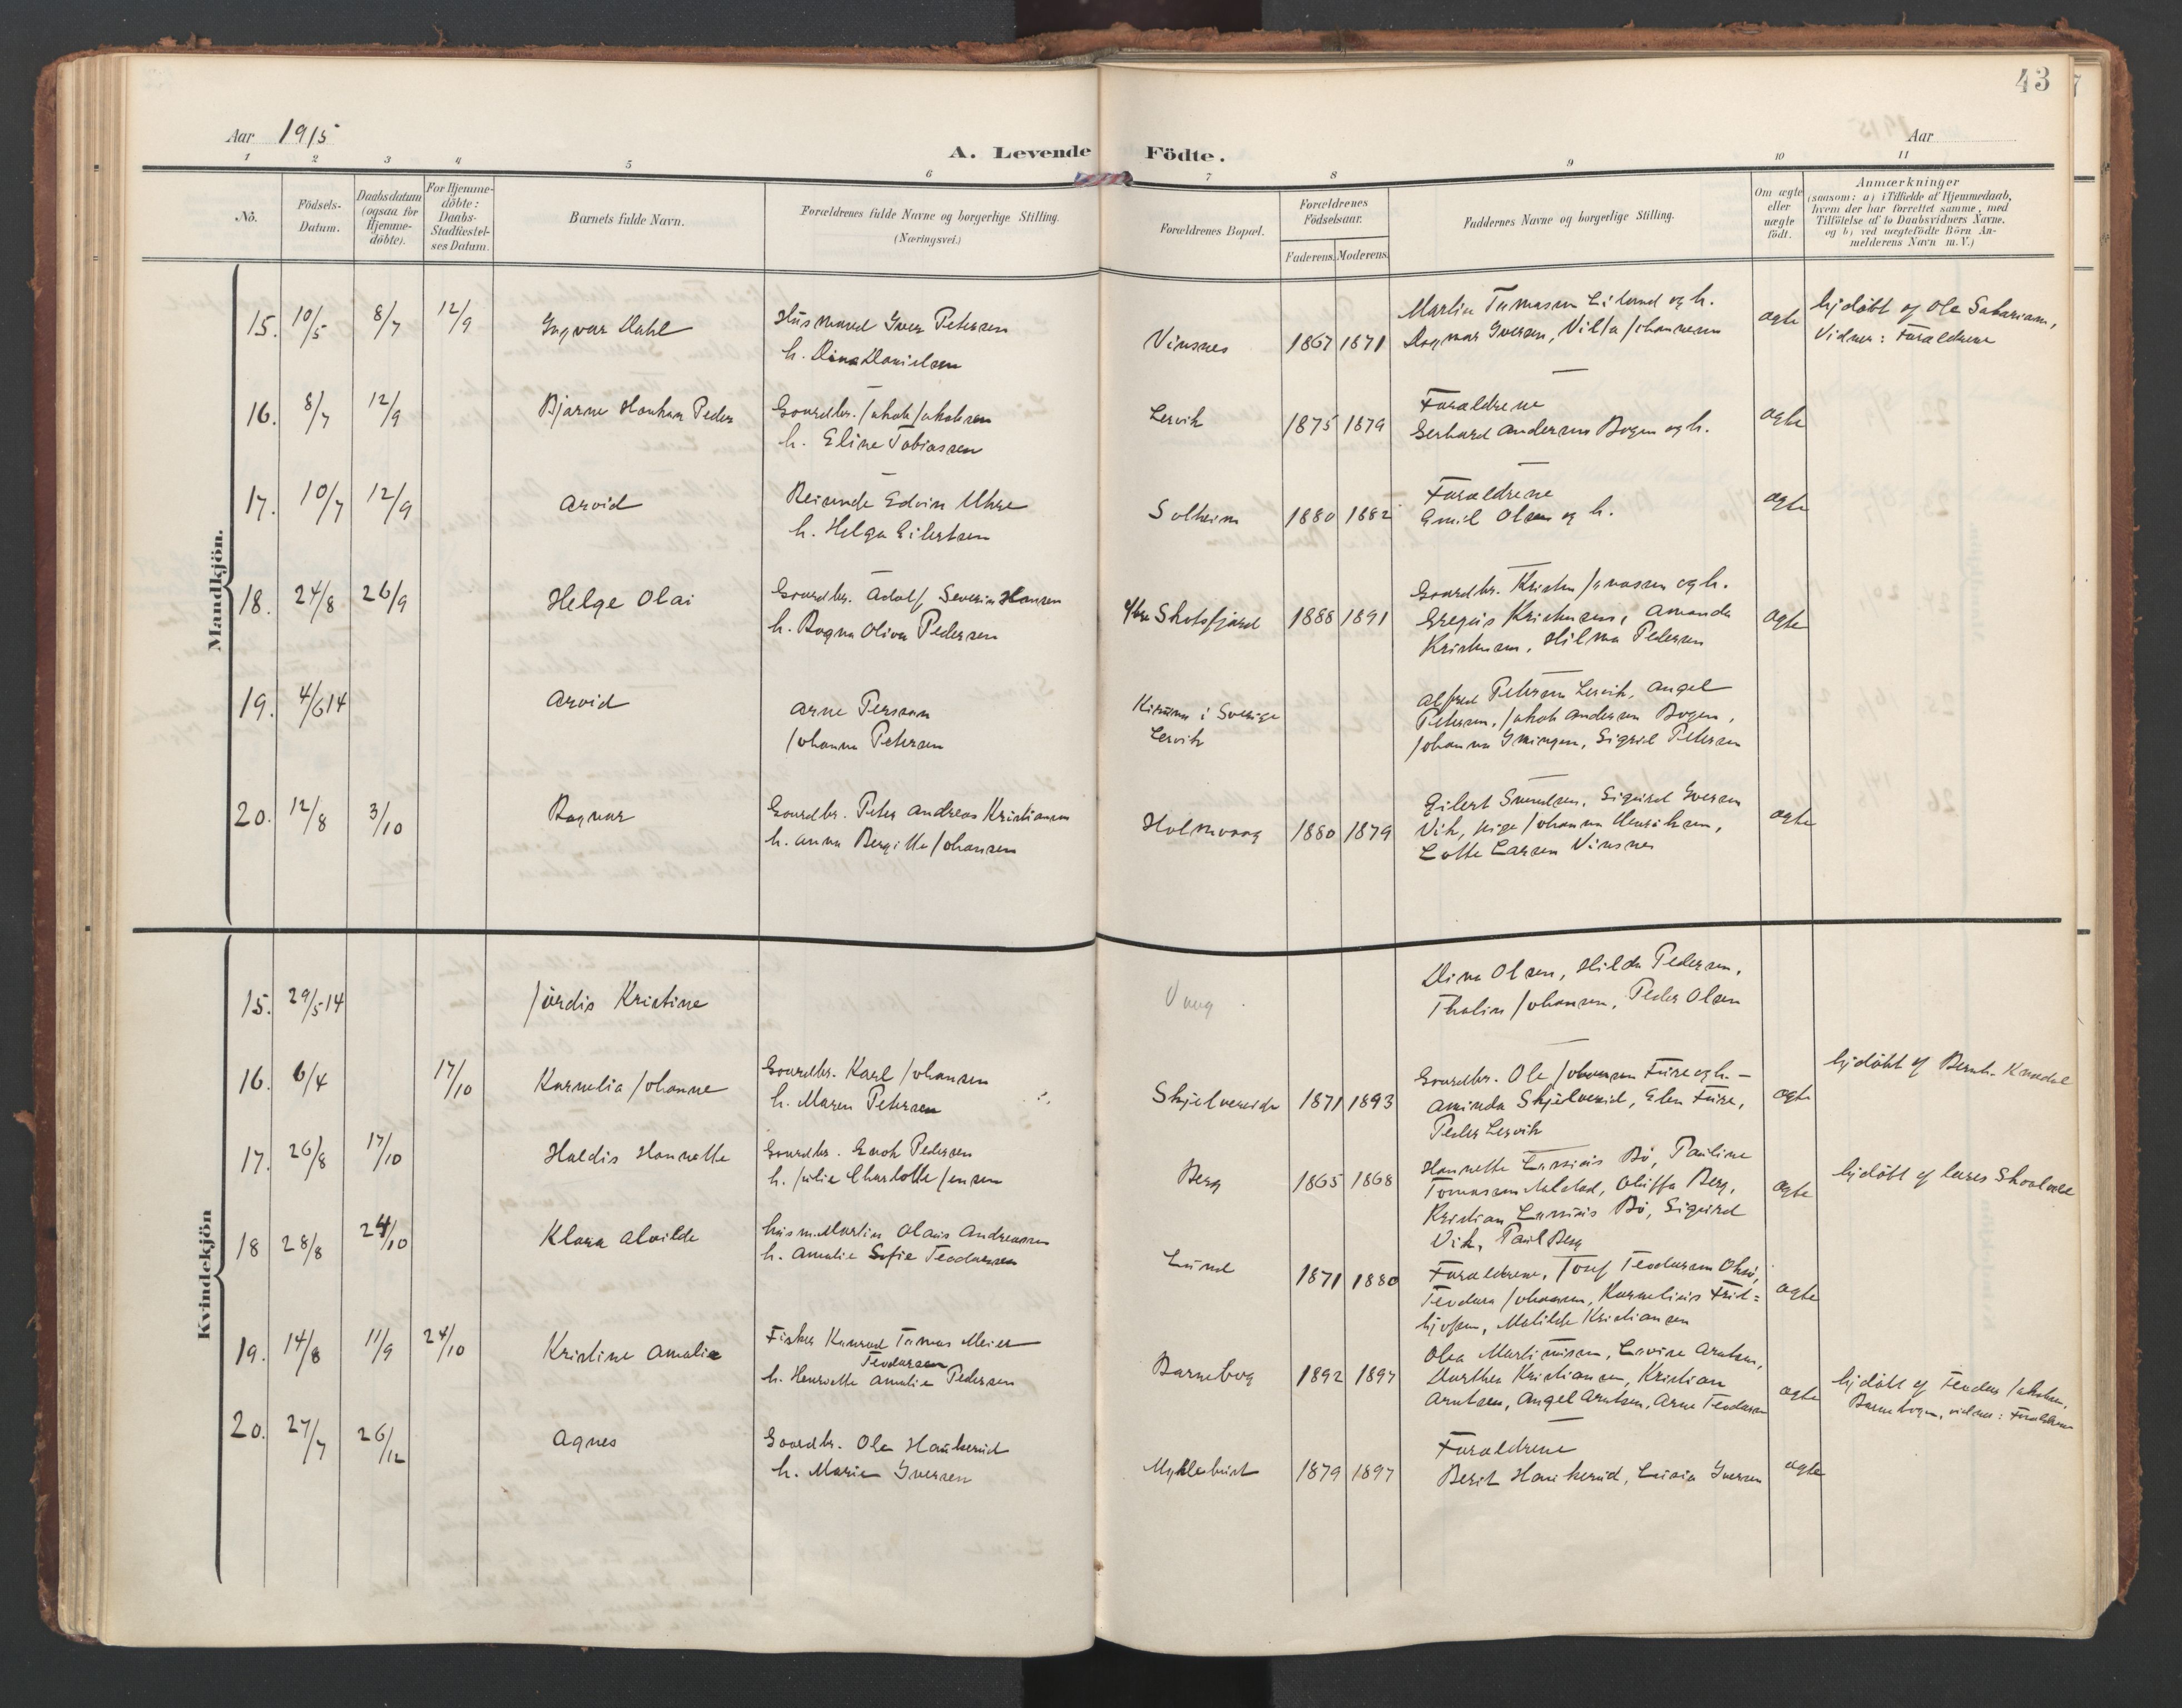 43
Aar 1915
A. Levende Födte.
Aar
1 2 3 4 5 6 7 8 9 10 11
No.
Födsels-Datum.
Daabsdatum (ogsaa for Hjemme-döbte).
For Hjemme-döbte: Daabs-Stadfæstel-ses Datum.
Barnets fulde Navn.
Forældrenes fulde Navne og borgerlige Stilling. (Næringsvei.)
Forældrenes Bopæl.
Forældrenes Födselsaar.
Faderens. Moderens.
Faddernes Navne og borgerlige Stilling.
Om ægte eller uægte födt.
Anmærkninger
(saasom: a) i Tilfælde af Hjemmedaab, hvem der har forrettet samme, med Tilföielse af to Daabsvidners Navne, og b) ved uægtefödte Börn An-melderens Navn m. V.)
Mandkjön.
15. 10/5 8/7 12/9 Ingvar Dahl
Husmand Iver Petersen
h. Dina Danielsen
Vinsnes 1867 1871
Martin Tomassen Eiland og h.
Dagmar Iversen, Johannesen
ægte
hjdöbt af Ole Sakariasen,
Vidner: Forældrene
16. 8/7 12/9 Bjarne Haakon Peder
Gaardbr. Jakob Jakobsen
h. Eline Tobiassen
Lervik 1875 1879
Forældrene
Gerhard Andersen Bogen og h.
ægte
17. 10/7 12/9 Arvid
Reisende Edvin Uhre
h. Helga Eilertsen
Solheim 1880 1882
Forældrene
Emil Olsen og h.
ægte
18. 24/8 26/9 Helge Olai
Gaardbr. Adolf Severin Hansen
h. Ragna Oliva Pedersen
Skotsfjord 1888 1891
Gaardbr. Kristen Jonassen og h.
Gregus Kristensen, Amanda
Kristensen, Hilma Pedersen
ægte
19. 4/6 14 Arvid
Arne Persson
Johanna Petersen
Kiruna i Sverige
Lervik
Alfred Petersen Lervik, Angel
Petersen, Jakob Andersen Bogen,
Johanna Iningen, Sigrid Petersen
20. 12/8 3/10 Ragnar
Gaardbr. Peter Andreas Kristiansen
h. Anna Bergitte Johansen
Holmvaag 1880 1879
Eilert Svendsen, Sigurd Iversen
Vik, pige Johanna Henriksen,
Lotte Larsen Vinsnes
ægte
Kvindekjön
15. 29/5 14 Jördis Kristine
Vaag
Dina Olsen, Hilda Pedersen,
Thalin Johansen, Peder Olsen
16. 6/4 17/10 Kornelia Johanne
Gaardbr. Karl Johansen
h. Maren Petersen
Skjelvereidr 1871 1893
Gaardbr. Ole Johansen Fure og h. –
Aminda Skjelvereid, Elen Fure,
Peder Lervik
ægte
hjdöbt af Bernh.
17. 26/8 17/10 Haldis Hannette
Gaardbr. Enok Pedersen
h. Julie Charlotte Jensen
Berg 1865 1868
Hannette Larsiius Bö, Pauline
Tomassen Alstad, Oluffa Berg,
Kristian Larsiius Bö, Sigurd
Vik, Paul Berg
ægte
hjdöbt af lærer
18 28/8 24/10 Klara Alvilde
husm. Martin Olaus Andreassen
h. Amalie Sofie Teodorsen
Lund 1871 1880
Forældrene, Josef Teodorsen Oksö,
Teodora Johansen, Kornelius Frid=
hjofsen, Matilde Kristiansen
ægte
19. 14/8 11/9 24/10 Kristine Amalie
Fisker Konrad Tomas Meier
Teodorsen
h. Henriette Amalie Pedersen
Barnebog 1892 1897
Olea Martinusen, Lovise Arntsen,
Dorthea Kristiansen, Kristian
Arntsen, Angel Arntsen, Arne Teodorsen
ægte
hjdöbt af Teodor Jakobsen,
Barnebogen, vidner: Forældrene
20. 27/7 26/12 Agnes
Gaardbr. Ole Haukerud
h. Marie Iversen
Myklebust 1879 1897
Forældrene
Berit Haukerud, Luisia Iversen
ægte